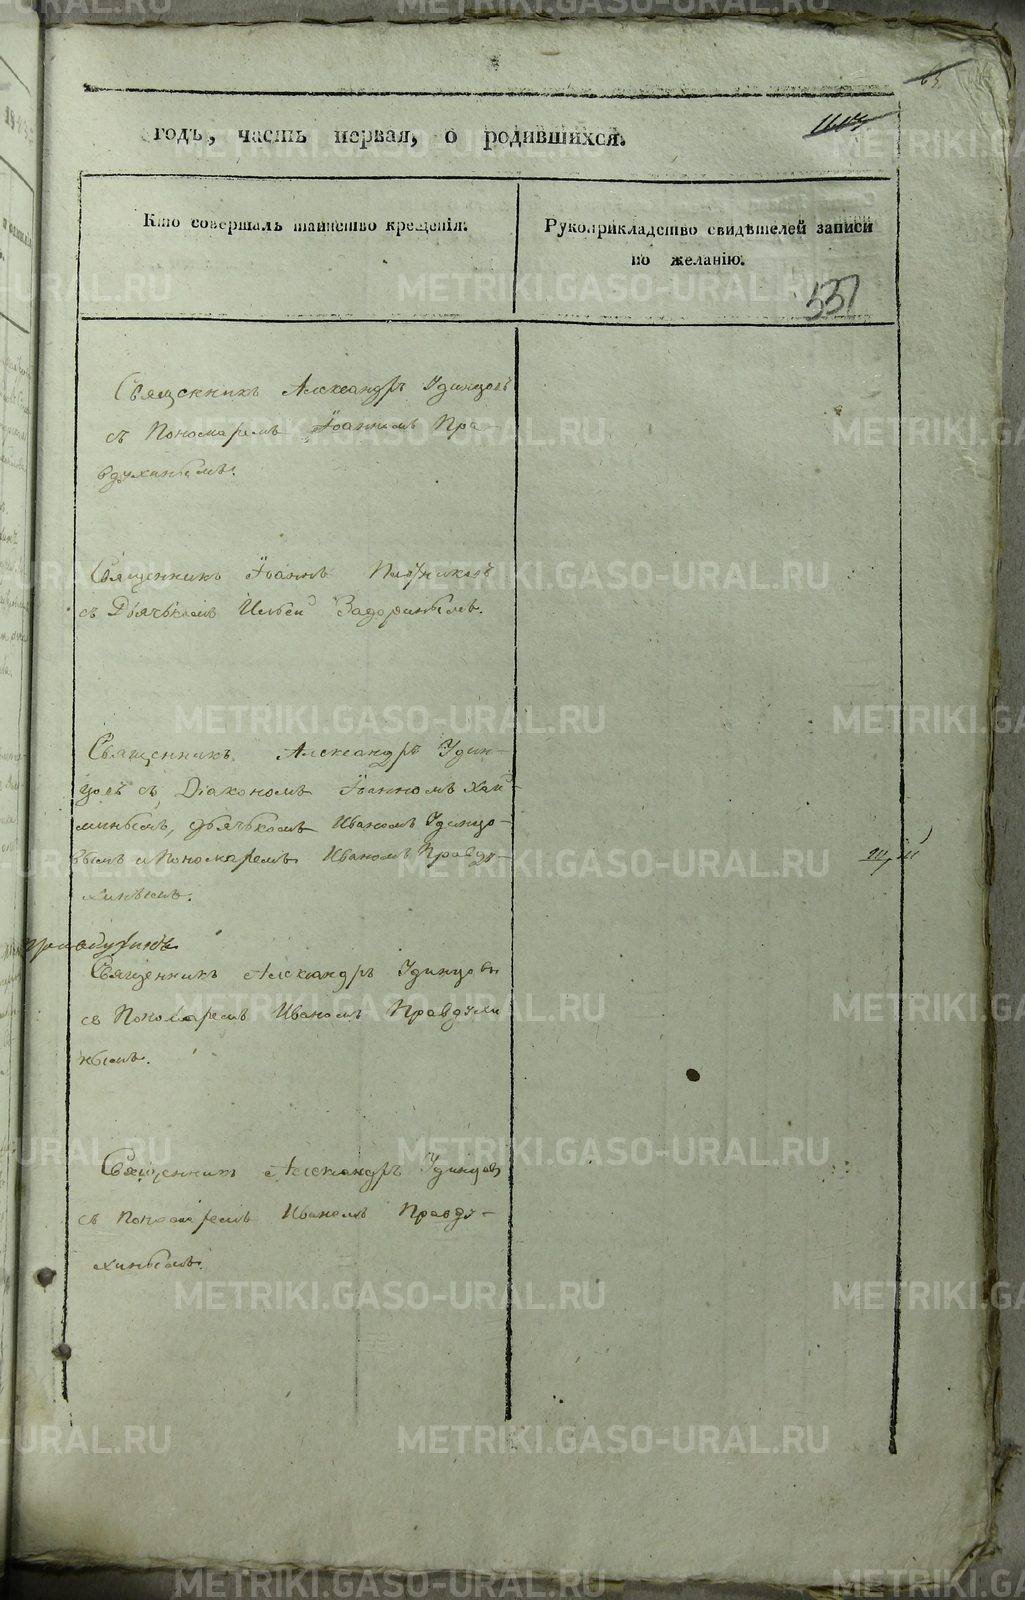 годъ, часть первая, о родившихся.
Кто совершалъ таинство крещенія.
Рукоприкладство свидѣтелей записи
по желанію.
537
Священникъ Александръ Удинцовъ
съ Пономаремъ Іоанномъ Пра-
вдухинымъ.
Священникъ Іоаннъ Плотниковъ
съ Дьячькомъ Ильей Задоринымъ.
Священникъ Александръ Удин-
цовъ съ Діакономъ Іоанномъ Хай-
минымъ, дьячькомъ Иваномъ Удинцо-
вымъ и Пономаремъ Иваномъ Правду-
хинымъ.
Священникъ Александръ Удинцовъ
съ Пономаремъ Иваномъ Правдухи
нымъ.
Священникъ Александръ Удинцовъ
съ Пономаремъ Иваномъ Правду-
хинымъ.
METRIKI.GASO-URAL.RU